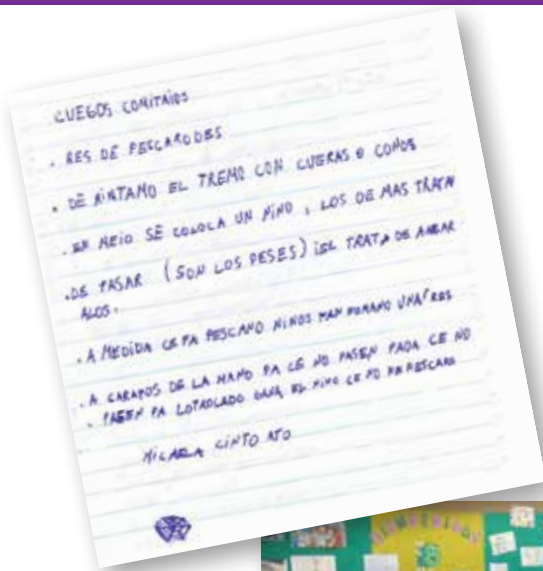 CUEGOS COMITAIOS
. RES DE PESCARODES
. DE MINTAMO EL TREMO CON CUERAS O CONOS
. EN MEIO SE COLOLA UN NINO, LOS DE MAS TRATN
. DE PASAR (SON LOS PESES) IEL TRATA DE
ALOS.
. A MEDIDA CE PESCANO NINOS
. A DE LA MANO PA CE NO PASEN PADA CE NO
. PASEN PA LOTROLADO GANA EL NINO CE NO PESCARO
MICAELA CINTO